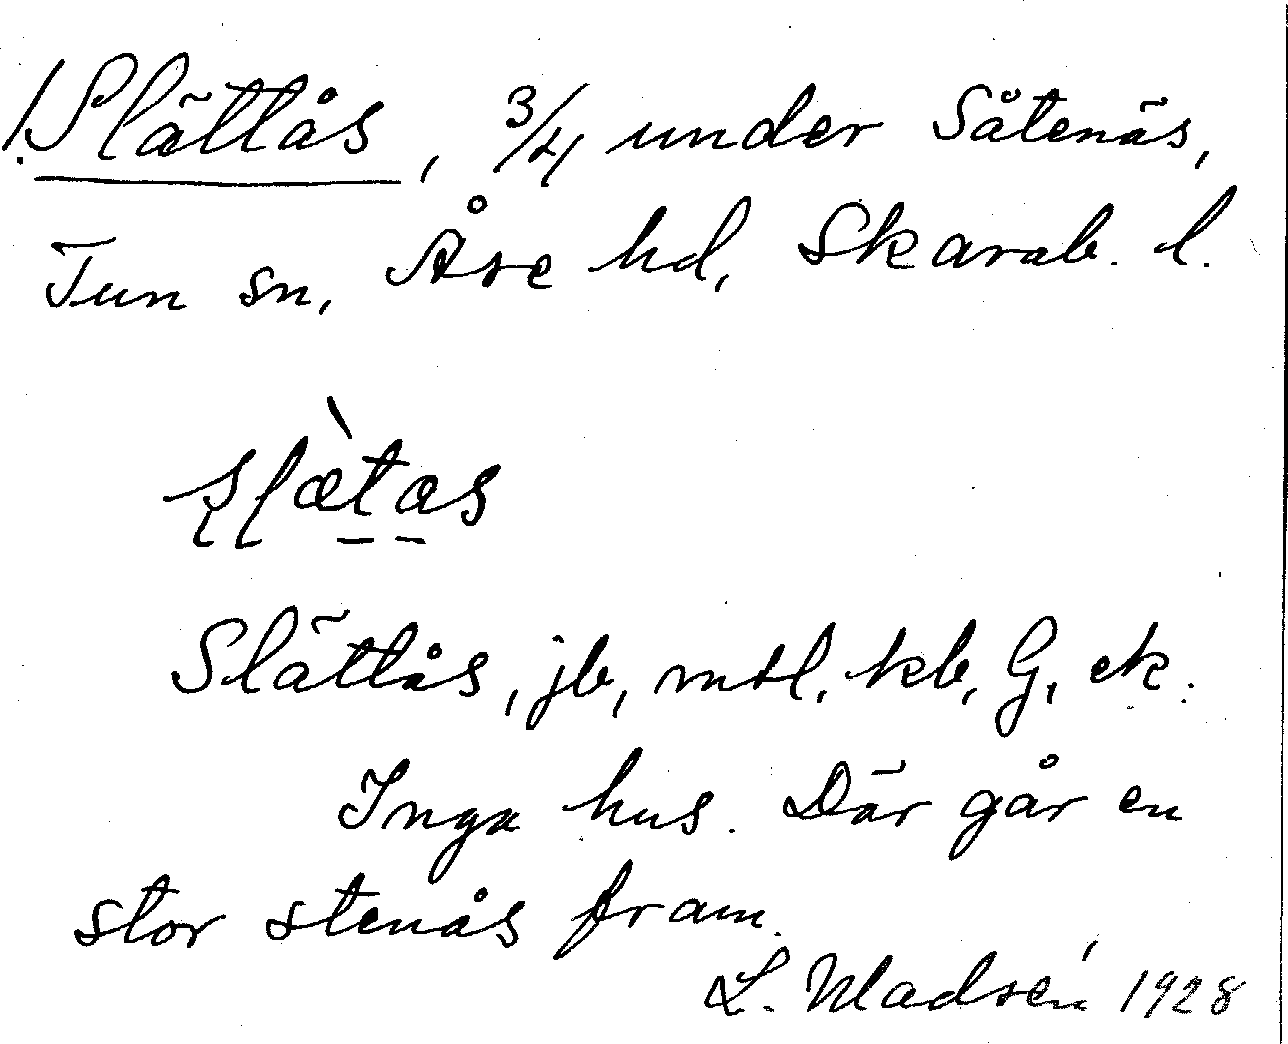 ! Slättås, 3/4 under Såtenäs,
Tun sn, Åse hd, Skarab. l.
slæ̀tas
Slättås, jb, mtl, kb, G, ek.
Inga hus. Där går en
stor stenås fram.
L. Madsén 1928